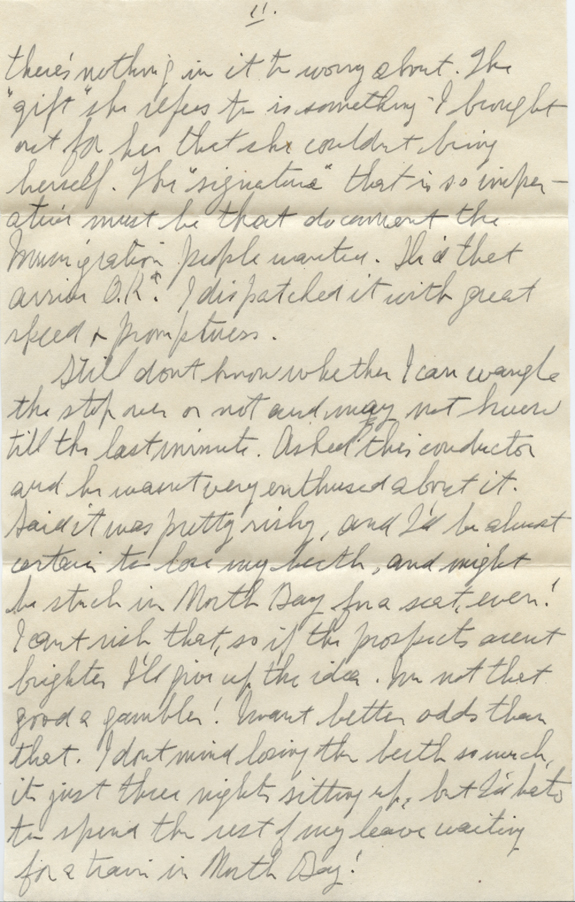 11.
there's nothing in it to worry about. The
"gift" she refers to is something I brought
out for her that she couldn't bring
herself. The "signature" that is so imper-
ative must be that document the
Immigration people wanted. I'd that
arrive O.K.? I dispatched it with great
speed + promptness.
Still dont know whether I can wangle
the stop over or not and may not know
till the last minute. Asked this conductor
and he wasnt very enthused about it.
Said it was pretty risky, and I'd be almost
certain to lose my berth, and might
be stuck in North Bay for a seat, even!
I cant risk that, so if the prospects arent
brighter I'll give up the idea. Im not that
good a gambler! I want better odds than
that. I dont mind losing the berth so much,
its just three nights sitting up, but I'd hate
to spend the rest of my leave waiting
for a train in North Bay!